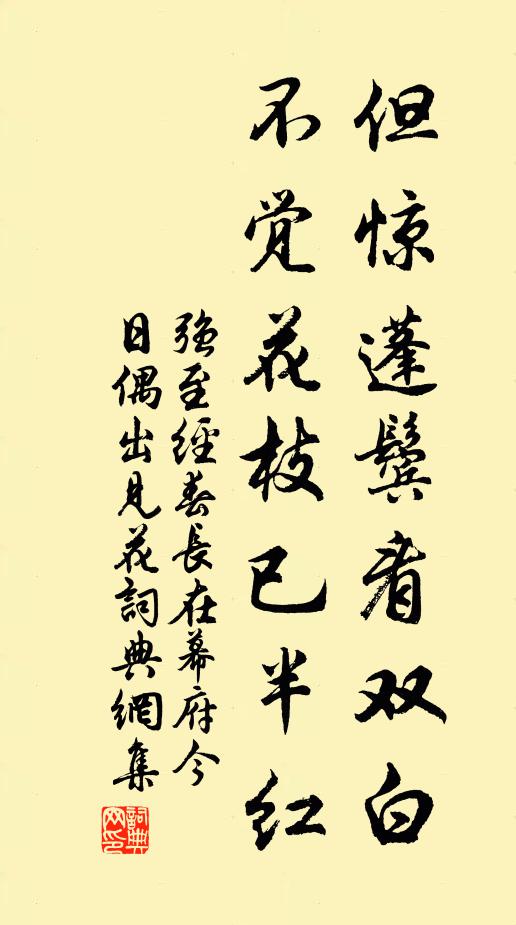 但惊蓬鬓看双白
不觉花枝已半红
强至經春長在幕府今
日偶出見花詞典網集
詞典網印